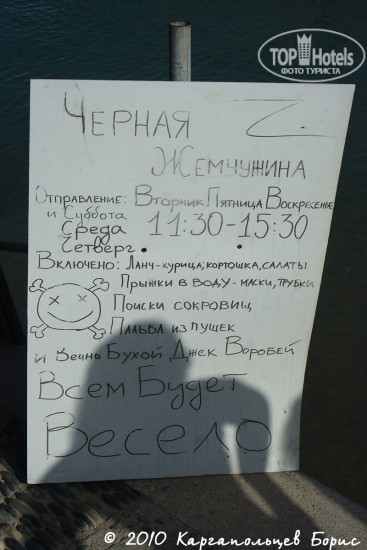 TOPHotels
ФОТО ТУРИСТА
ЧЕРНАЯ
ЖЕМЧУЖИНА
ОТПРАВЛЕНИЕ: ВТОРНИК ПЯТНИЦА ВОСКРЕСЕНЬЕ
и Суббота
Среда 11:30-15:30
Четверг
ВКЛЮЧЕНО: ЛАНЧ-КУРИЦА, КОРТОШКА, САЛАТЫ
ПРЫЖКИ В ВОДУ - МАСКИ, ТРУБКИ
ПОИСКИ СОКРОВИЩ
ПАЛЬБА ИЗ ПУШЕК
и Вечно Бухой Джек Воробей
ВСЕМ БУДЕТ
ВЕСЕЛО
© 2010 Каргапольцев Борис